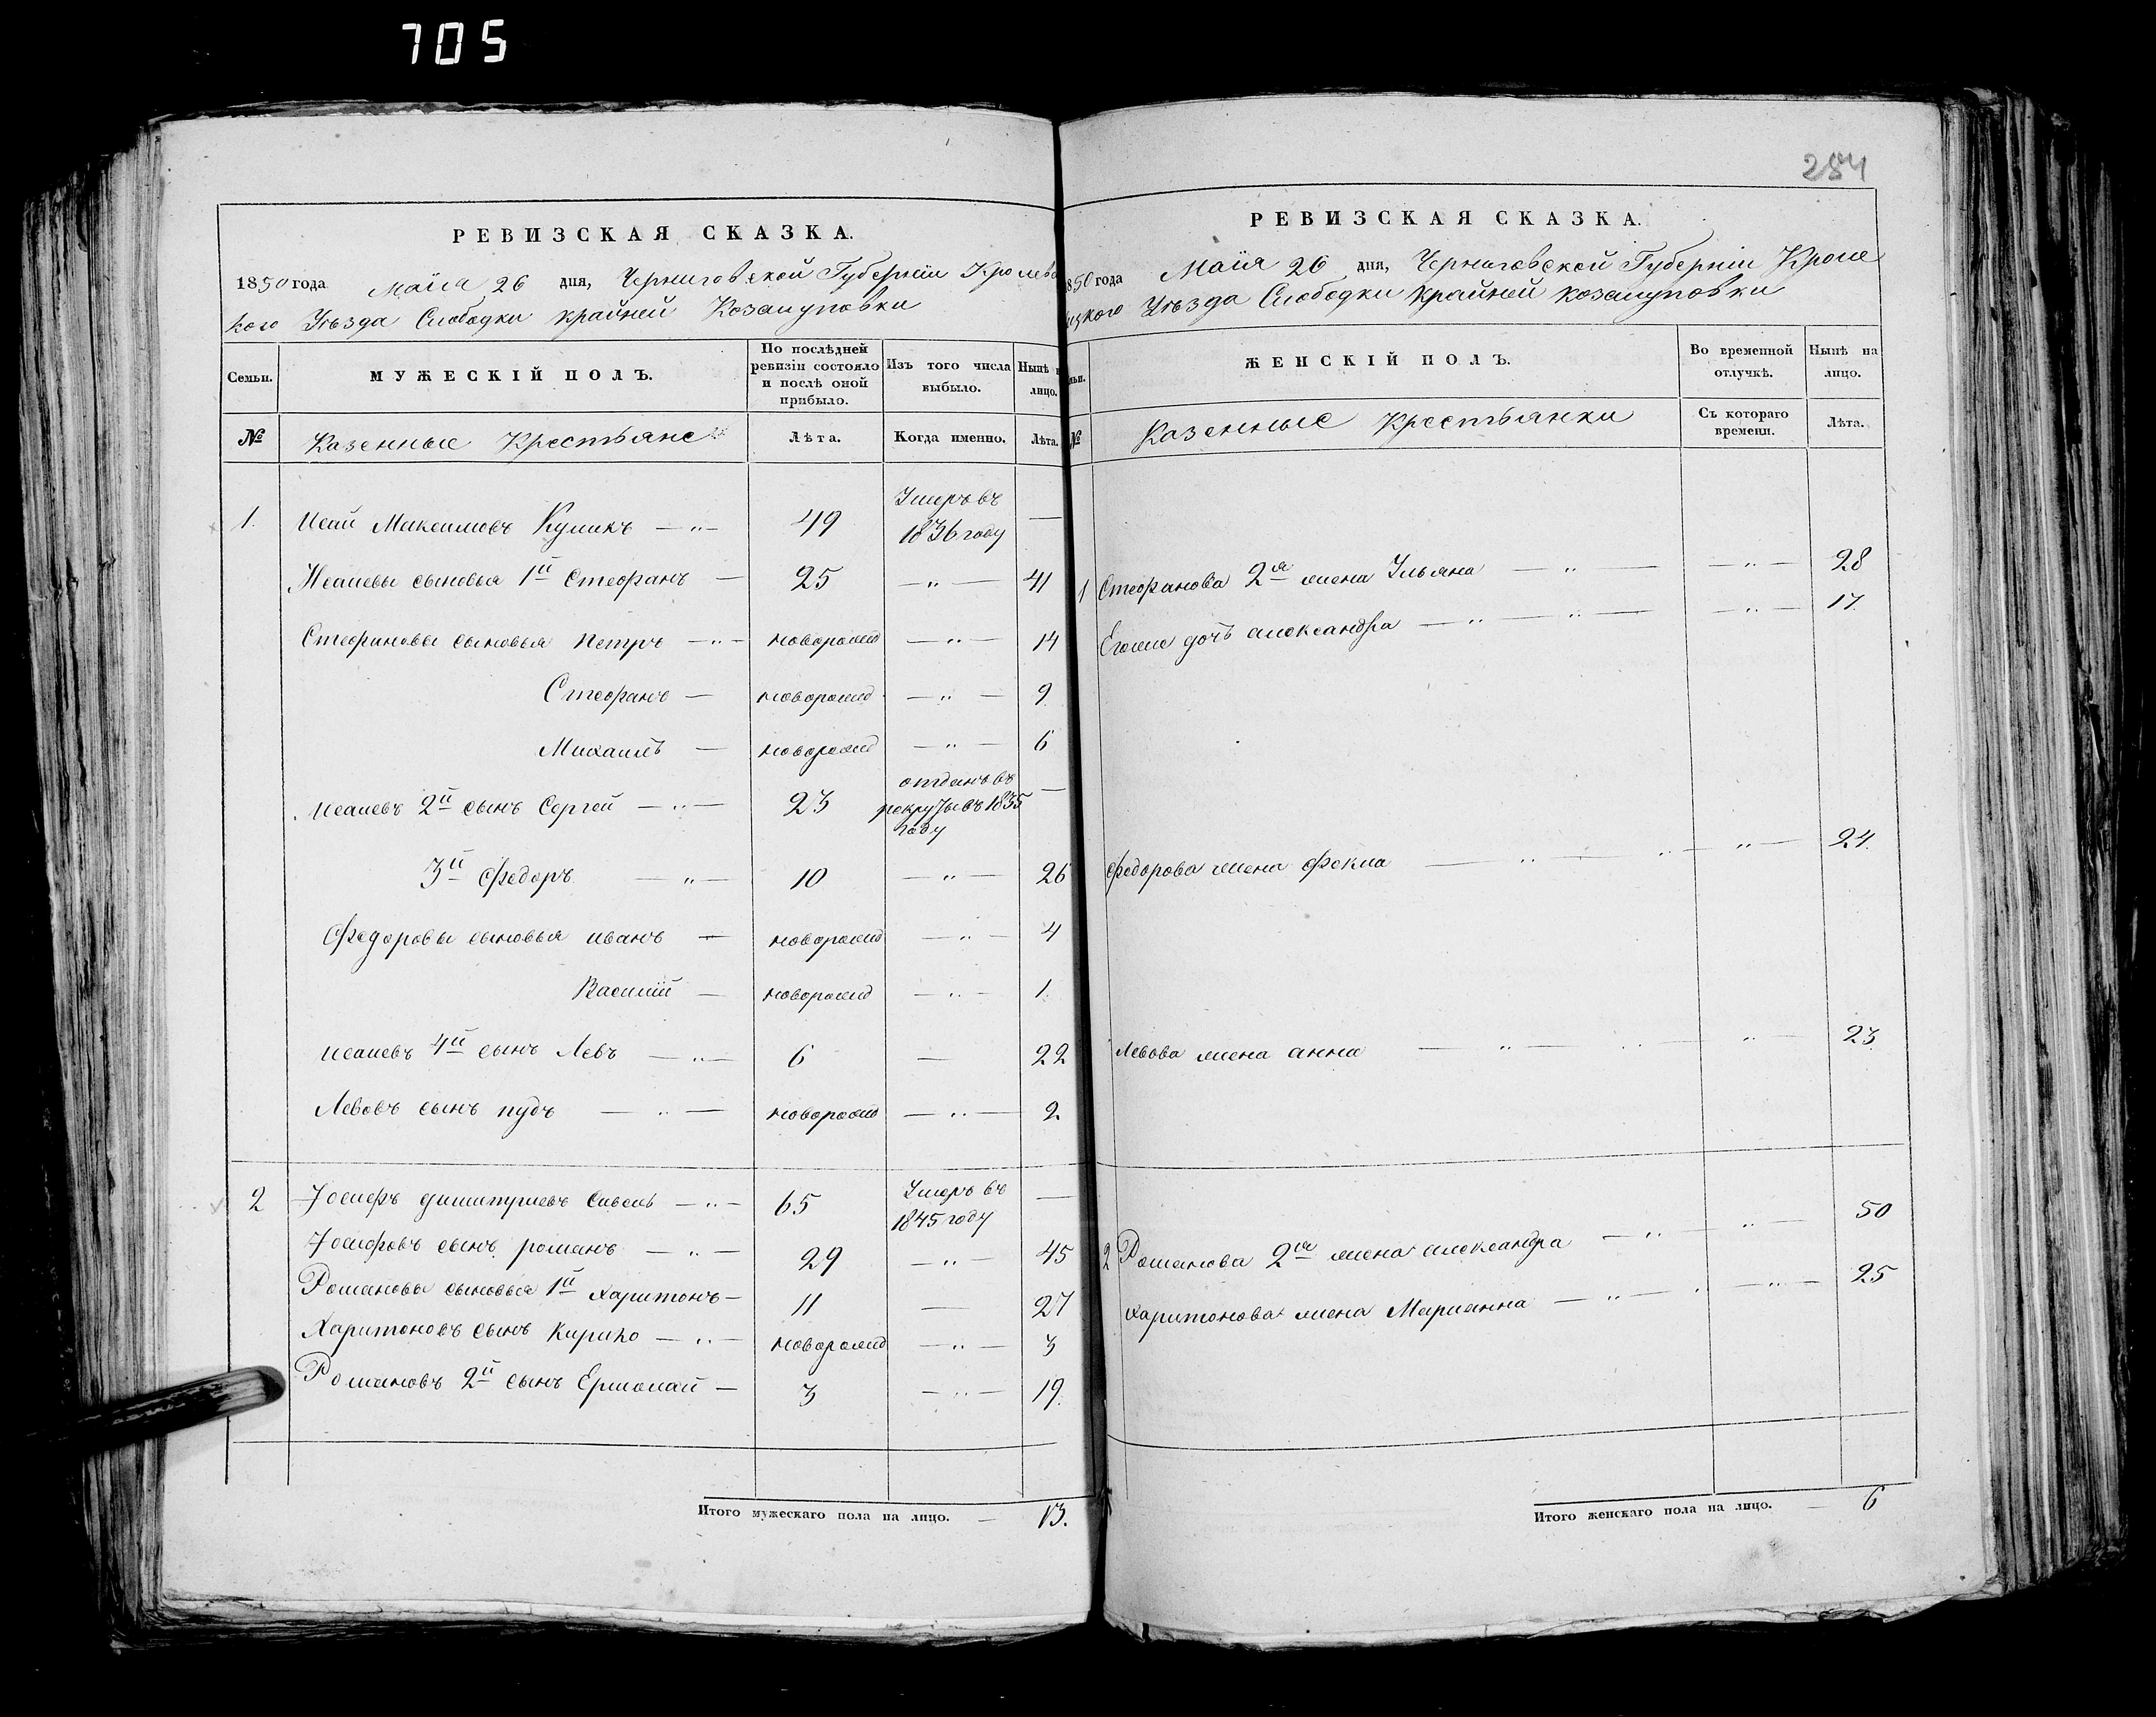 705
284
РЕВИЗСКАЯ СКАЗКА.
1850 года Маия 26 дня, Черниговской Губернiи Кролев
кого Уѣзда Слободки крайней Козацуповки
Семьи.
МУЖЕСКІЙ ПОЛЪ.
По послѣдней ревизіи состояло и послѣ оной прибыло.
Изъ того числа выбыло.
Нынѣ на лицо.
№
Казенные Крестьяне
Лѣта.
Когда именно.
Лѣта.
1. Исай Максимовъ Куликъ — 49 Умеръ въ 1836 году —
Исаиевы сыновья 1й Стефанъ — 25 — 41
Стефановы сыновья Петръ — новорожд — 14
Стефанъ — новорожд — 9
Михаилъ — новорожд — 6
Исаиевъ 2й сынъ Сергей — 23 отданъ въ рекруты въ 1835 году —
3й Федоръ — 10 — 26
Федоровы сыновья иванъ — новорожд — 4
Василий — новорожд — 1.
Исаиевъ 4й сынъ Левъ — 6 — 22
Левовъ сынъ пудъ — новорожд — 2
2 Іосифъ димитриевъ — 65 Умеръ въ 1845 году —
Іосифовъ сынъ романъ — 29 — 45
Романовы сыновья 1й Харитонъ — 11 — 27
Харитоновъ сынъ Кирико — новорожд — 3
Романовъ 2й сынъ Ермолай — 3 — 19.
Итого мужескаго пола на лицо. — 13.
РЕВИЗСКАЯ СКАЗКА.
1850 года Маия 26 дня, Черниговской Губернiи Кроле
вецкого Уѣзда Слободки крайней козацуповки
ЖЕНСКІЙ ПОЛЪ.
Во временной отлучкѣ.
Нынѣ на лицо.
№
Казенные Крестьянки
Съ котораго времени.
Лѣта.
1 Стефанова 2я жена Ульяна — 28
Егоже дочь александра — 17.
Федорова жена Фекла — 24.
Левова жена анна — 23.
2 Романова 2я жена александра — 50
харитонова жена Марианна — 25
Итого женскаго пола на лицо. — 6